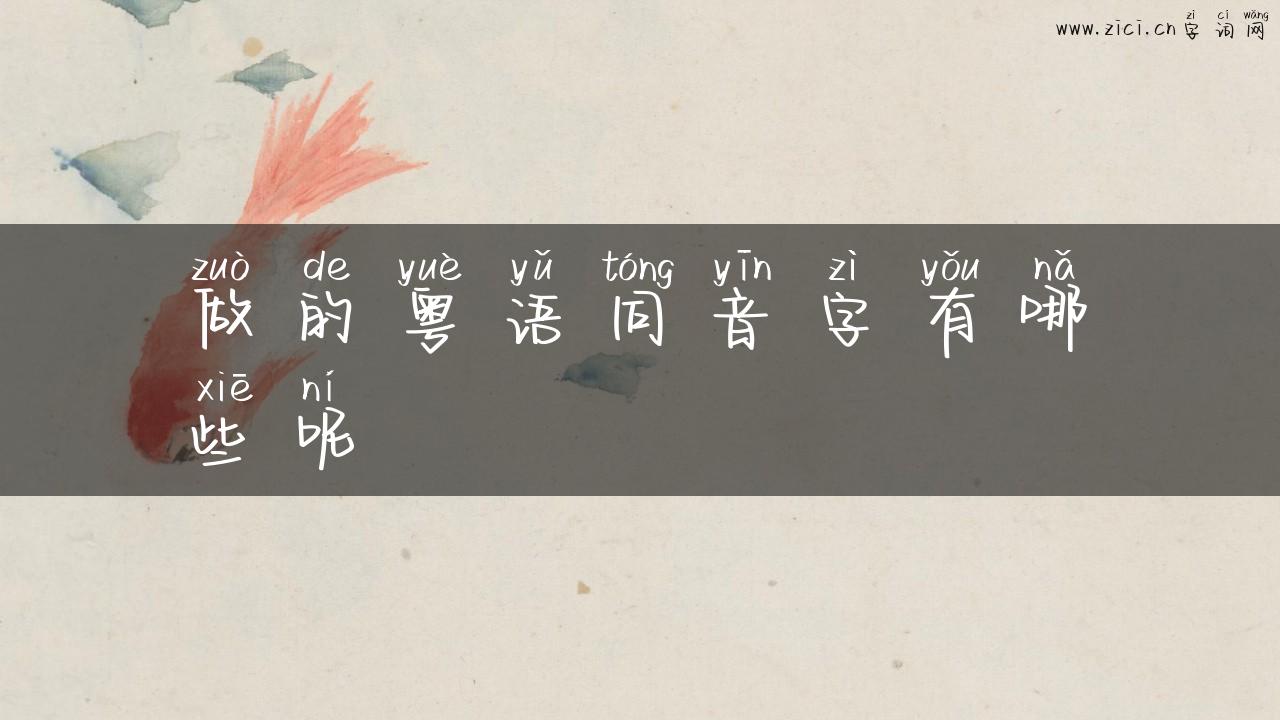 zì cí wǎng
www.zici.cn 字词网
zuò de yuè yǔ tóng yīn zì yǒu nǎ
做的粤语同音字有哪
xiē ní
些呢